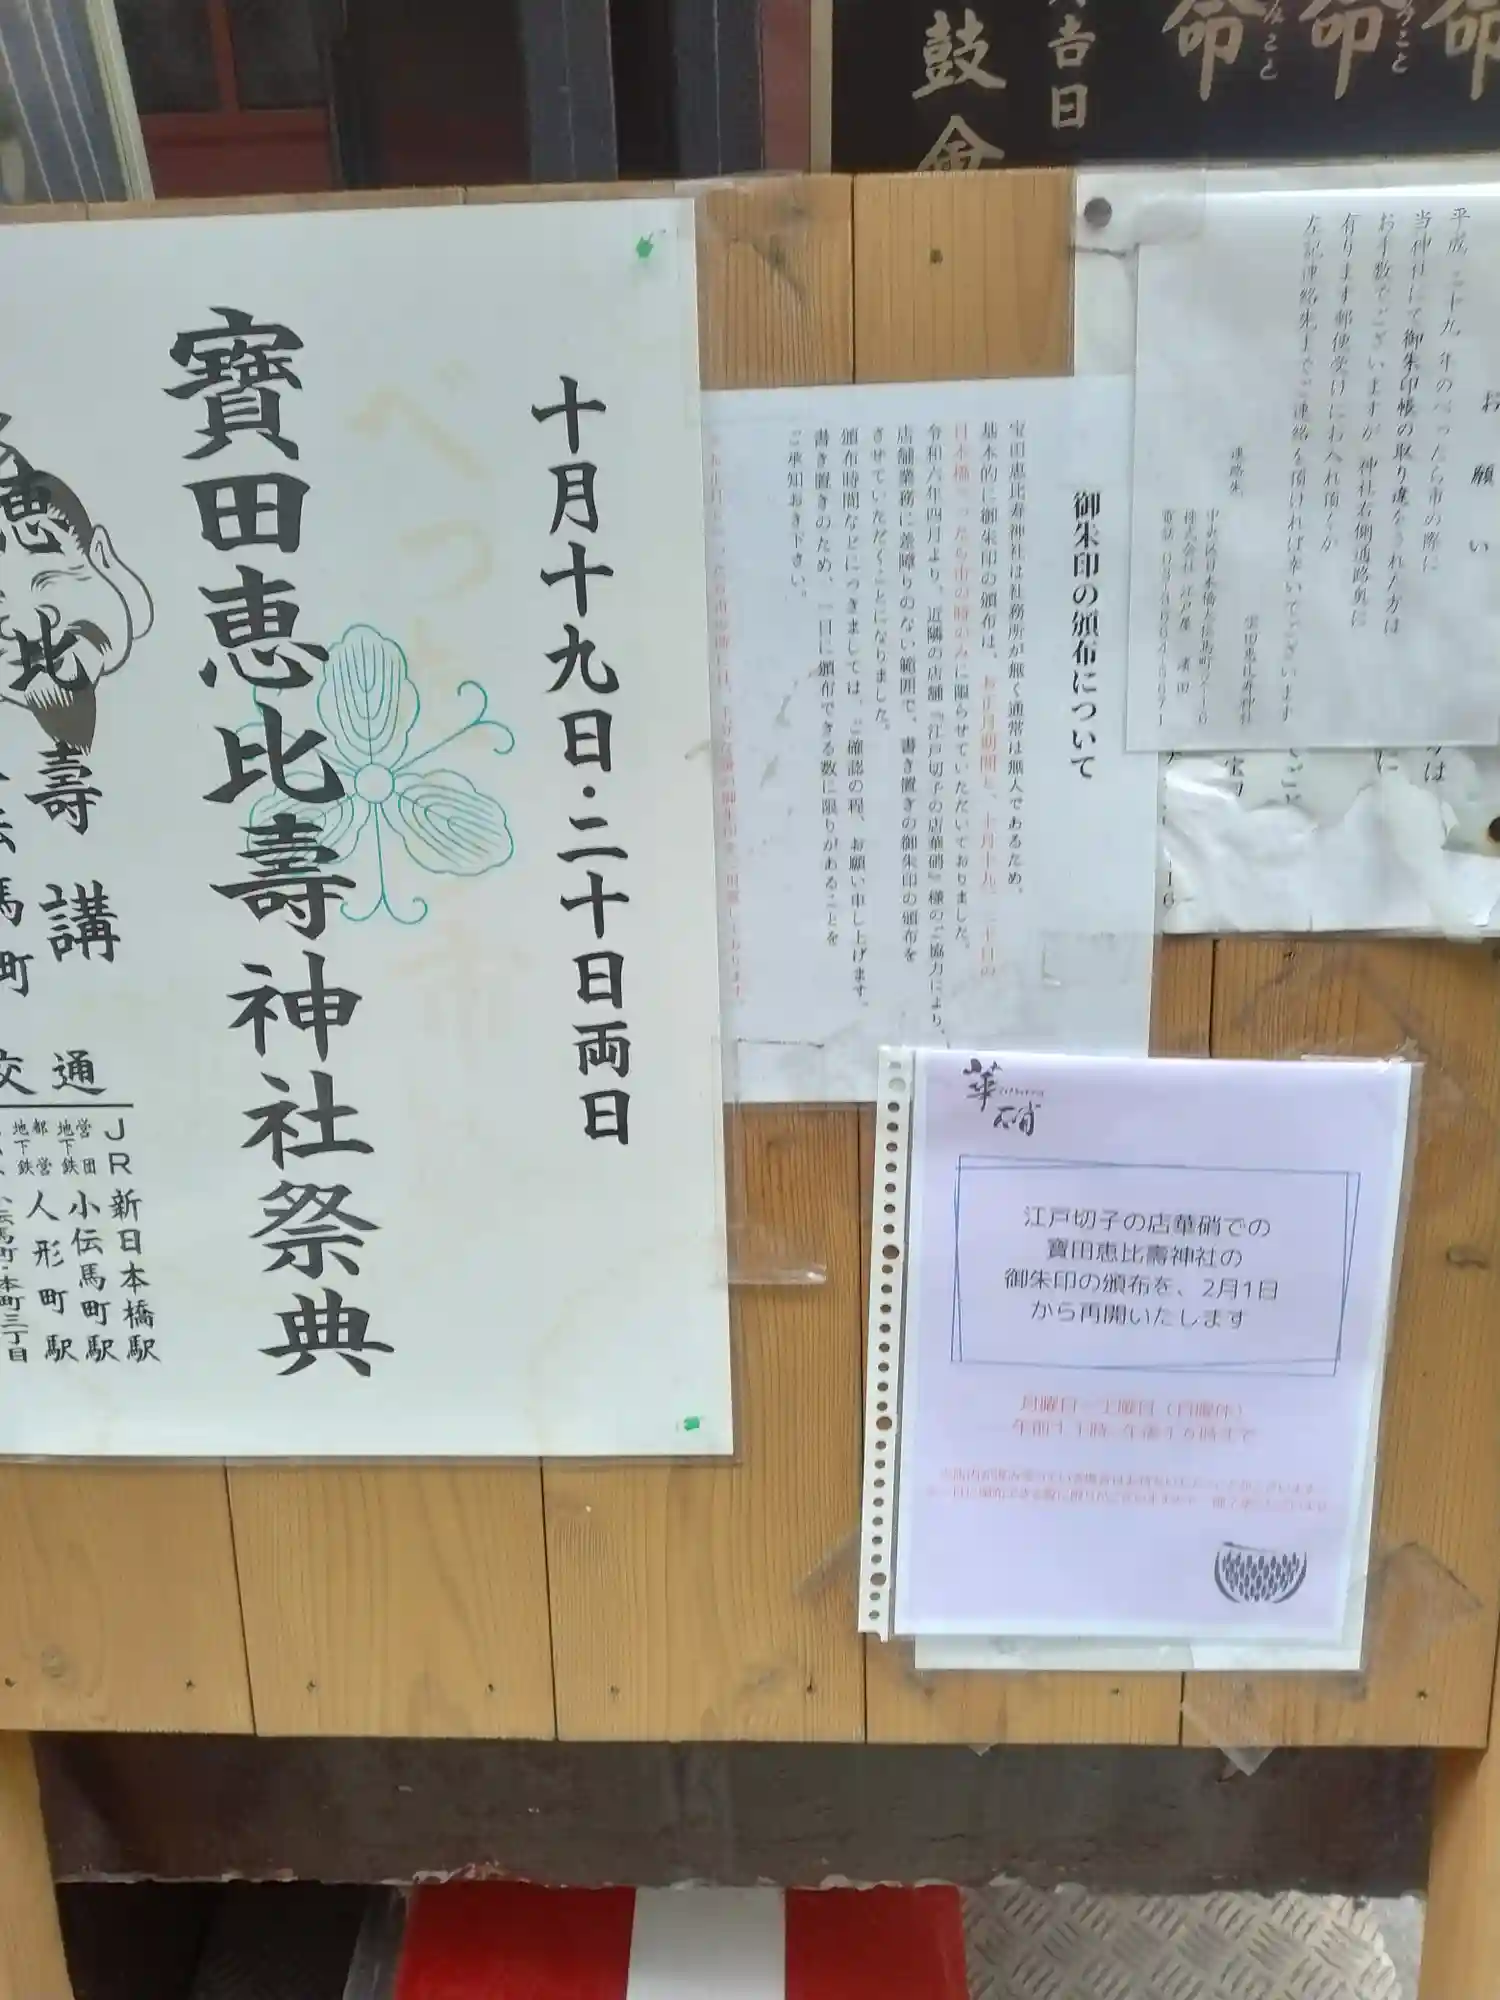 吉日
鼓会
命
命
命
十月十九日・二十日両日
べったら市
寶田恵比壽神社祭典
恵比
壽講
馬町
交通
JR 新日本橋駅
営団地下鉄 小伝馬町駅
都営地下鉄 人形町駅
本町三丁目
御朱印の頒布について
宝田恵比寿神社は社務所が無く通常は無人であるため、
基本的に御朱印の頒布は、お正月期間と、十月十九、二十日の
日本橋べったら市の時のみに限らせていただいておりました。
令和六年四月より、近隣の店舗『江戸切子の店華硝』様のご協力により、
店舗業務に差障りのない範囲で、書き置きの御朱印の頒布を
させていただくことになりました。
頒布時間などにつきましては、ご確認の程、お願い申し上げます。
書き置きのため、一日に頒布できる数に限りがあることを
ご承知おき下さい。
お願い
平成二十九年のべったら市の際に
当神社にて御朱印帳の取り違をされた方は
お手数でございますが神社右側通路奥に
有ります郵便受けにお入れ頂くか
左記連絡先までご連絡を頂ければ幸いでございます
宝田恵比寿神社
連絡先
中央区日本橋大伝馬町2-16
株式会社 江戸屋 濱田
華硝
江戸切子の店華硝での
寶田恵比壽神社の
御朱印の頒布を、2月1日
から再開いたします
月曜日～土曜日（日曜休）